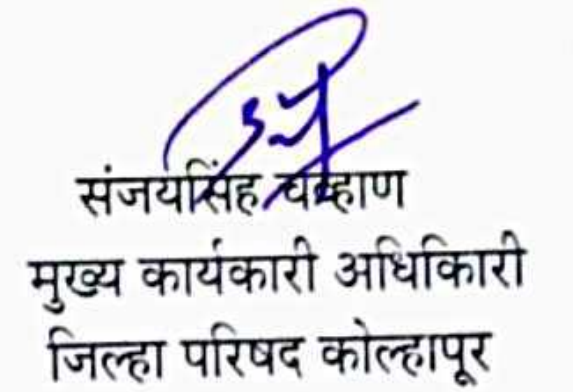 संजयसिंह चव्हाण
मुख्य कार्यकारी अधिकिारी
जिल्हा परिषद कोल्हापूर